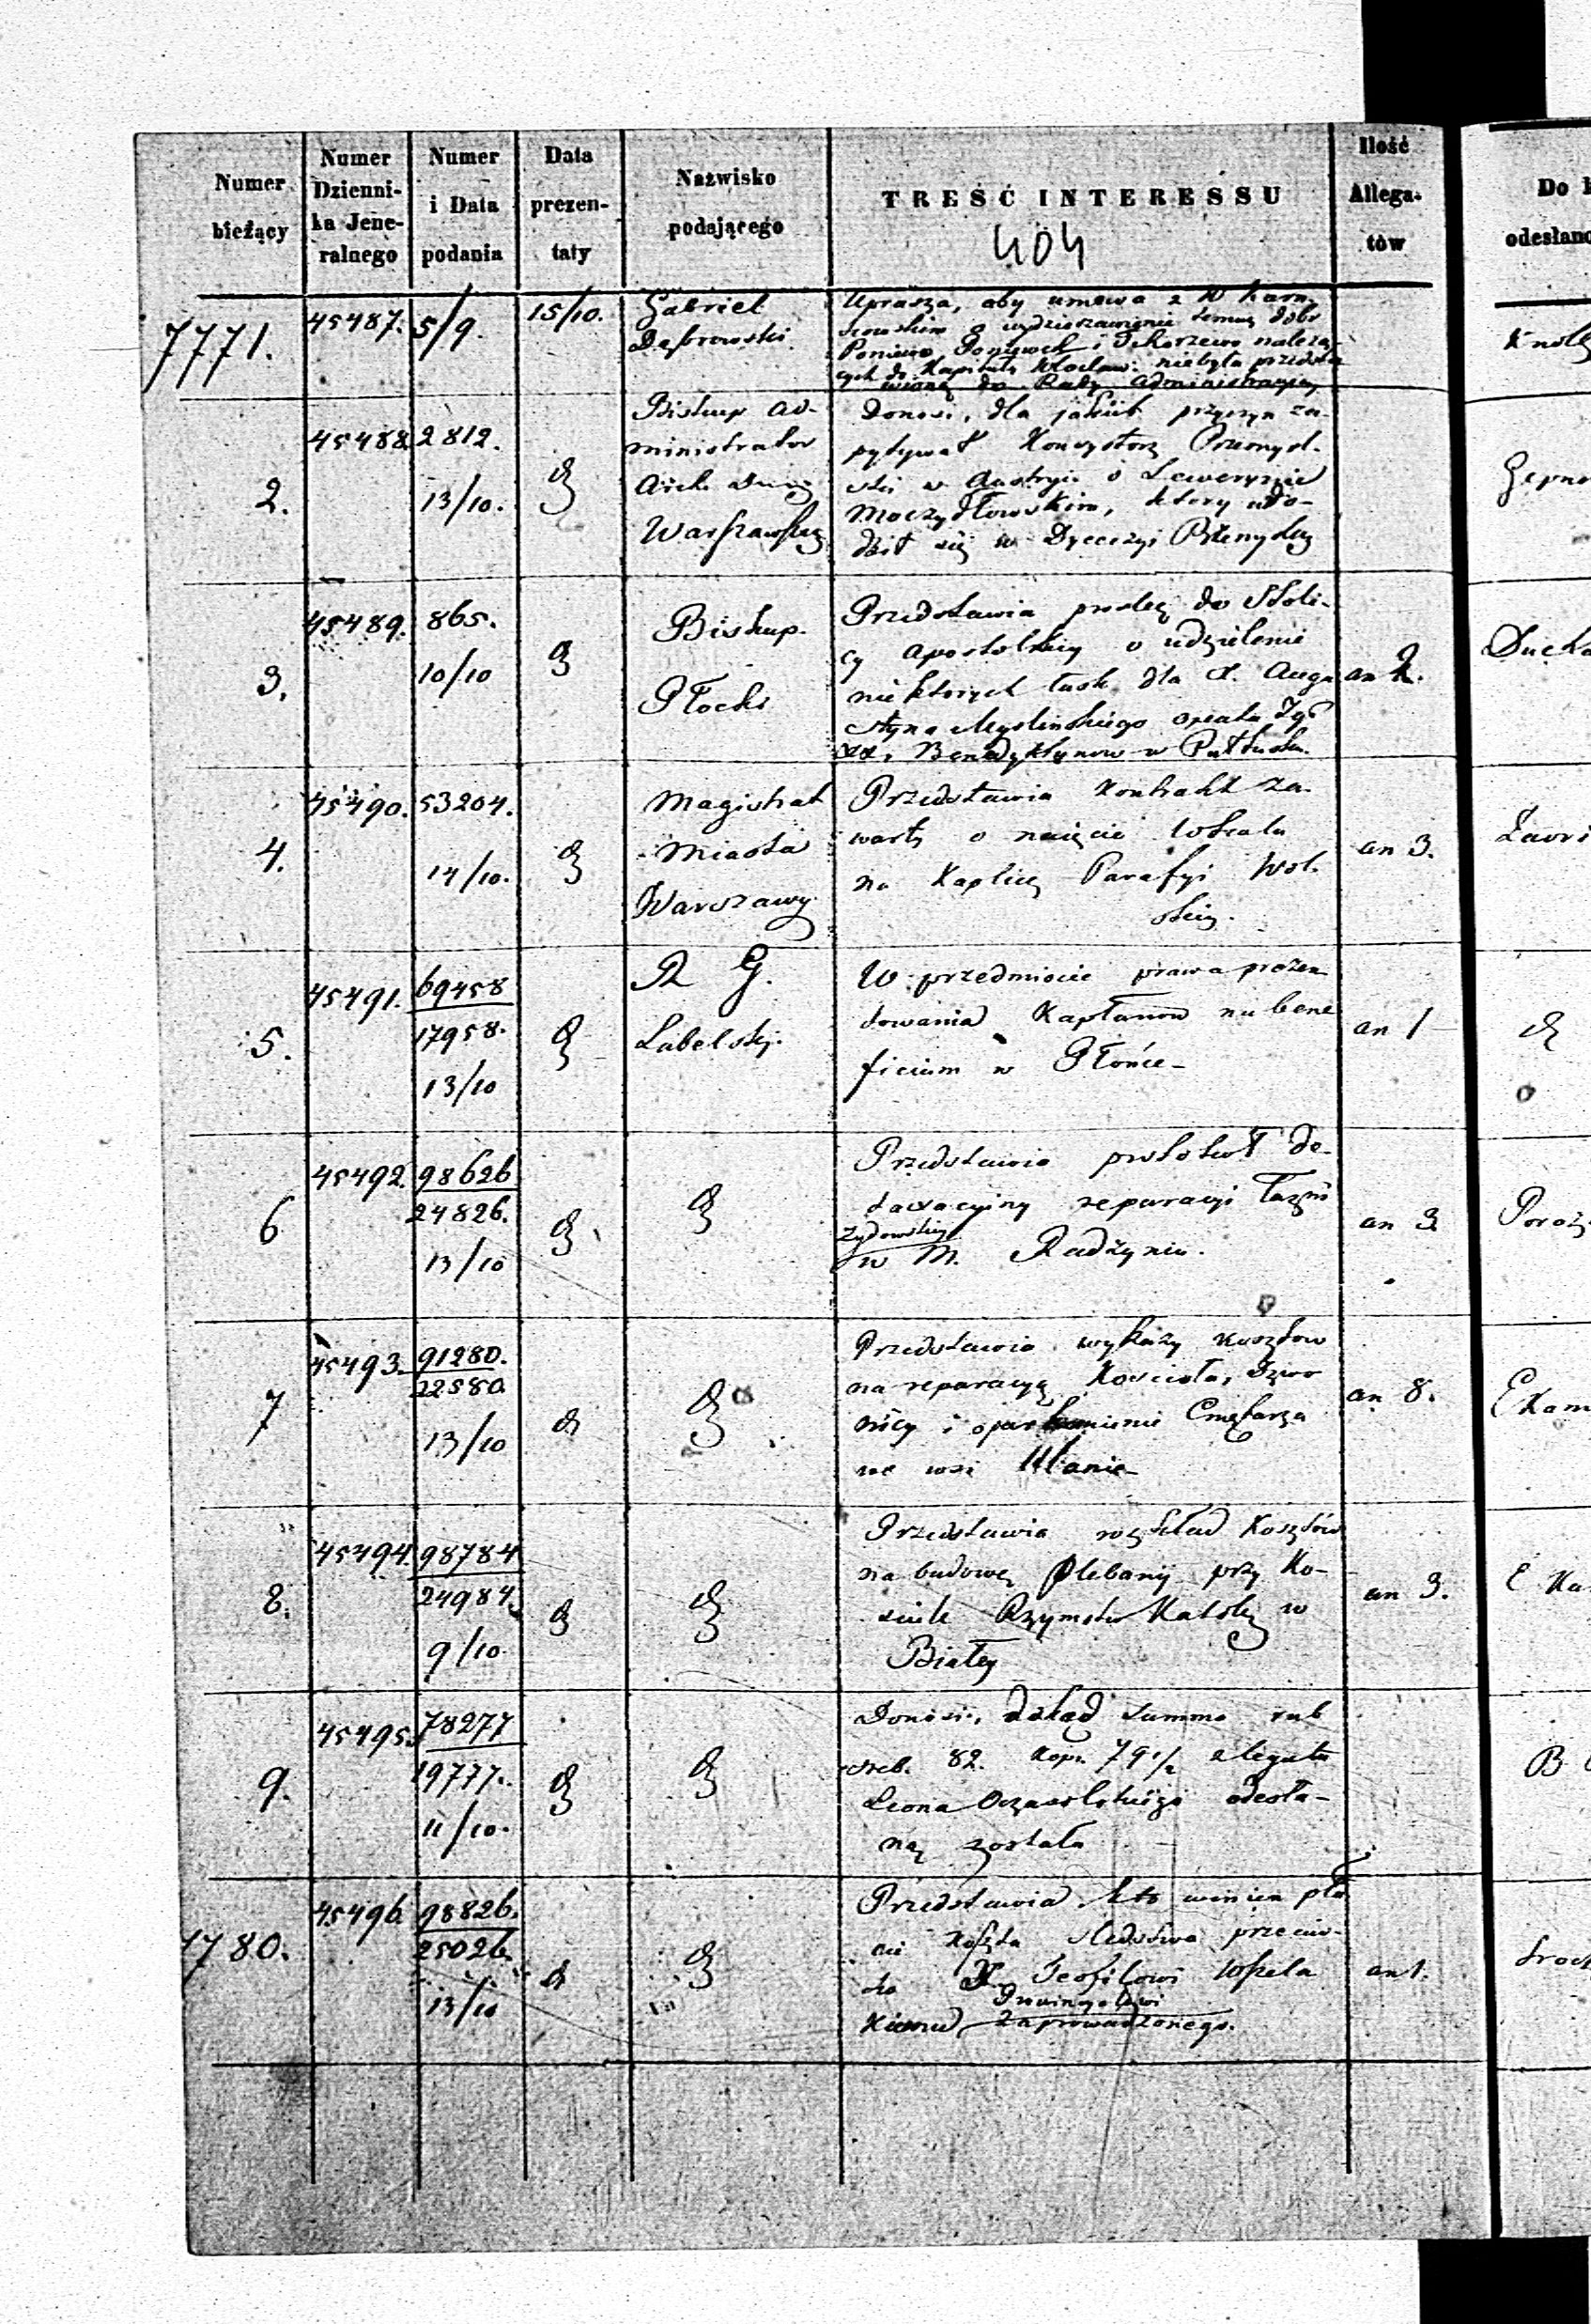 Numer bieżący
Numer Dzienni- ka Jene- ralnego
Numer i Data podania
Data prezen- taty
Nazwisko podającego
TREŚĆ INTERESSU
404
Ilość Allega- tów
Do
odesłano
7771.
45487.
5/9.
15/10.
Gabriel
Dąbrowski
Uprasza, aby umowa z
o wydzierżawienie temuż dóbr
i Tchorzewo należą-
cych do Kapituły Włocław: niebyła przedsta
wioną do Rady Administracyjnej
2.
45488.
2812.
13/10.
Biskup Ad-
ministrator
Arch.
Warszawskiej
Donosi, dla jakich przyczyn za-
pytywał Konsystorz Przemysl-
ski w Austryi o Seweryna
Moczydłowskim, który
się w Dyecezyi Przemyskiej
3.
45489.
865.
10/10
Biskup
Płocki
Przedstawia prośbę do Stoli-
cy Apostolskiej o udzielenie
niektórych łask dla X. Augu
styna Myslinskiego opata Zgr
XX. Benedyktynow w Pułtusku.
an 2.
4.
45490.
53204.
14/10.
Magistrat
Miasta
Warszawy.
Przedstawia Kontrakt za-
warty o najęcie lokalu
na Kaplicę Parafyi Wol-
skiej.
an 3.
5.
45491.
69458
17958.
13/10
R G.
Lubelskj.
W przedmiocie prawa prezen
towania Kapłanow na bene
ficium w Płońce
an 1
6
45492.
98626
24826.
13/10
Przedstawia protokuł de-
taxacyjny reparacyi łazni
żydowskiej
w M. Radzyniu.
an 3
7
45493.
91280.
22580.
13/10
Przedstawia wykazy kosztow
na reparacyą Kościoła, Dzwo
nicy i oparkanienie Cmętarza
we wsi Ulanie
an 8.
8.
45494.
98784
24984.
9/10
Przedstawia rozkład Kosztów
na budowę plebanij przy Ko-
ściele Rzymsko Katolj w
Białej
an 3.
9.
45495.
78277
19777.
11/10.
Donosi, dokąd summa rub
sreb. 82. kop. 79 1/2 z legatu
Leona odesła-
ną została
7780.
45496.
98826.
25026.
13/10
Przedstawia kto winien pła
cić koszta śledztwa przeciw-
ko X. Teofilowi
Prowincyałowi
zaprowadzonego.
an 1.